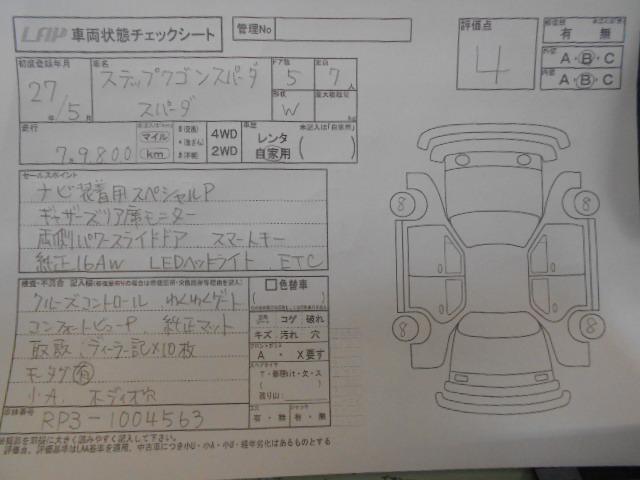 LAA 車両状態チェックシート
管理No
評価点
4
有 無
外装 A・B・C
内装 A・B・C
初度登録年月
27年/5月
車名
ステップワゴンスパーダ
スパーダ
ドア数
5
定員
7人
形状
W
最大積載量
kg
走行
79,800
マイル
km
4WD
2WD
車歴
未記入は「自家用」
レンタ
自家用
セールスポイント
ナビ装着用スペシャルP
ギャザーズリア席モニター
両側パワースライドドア スマートキー
純正16AW LEDヘッドライト ETC
クルーズコントロール わくわくゲート
コンフォートビューP. 純正マット
取説 ディーラー記×10枚
モタグ有
小A. ボディ穴
色替車
コゲ 破れ
キズ 汚れ 穴
A ・ X要す
有・無 有・無
車体番号
RP3-1004563
8
8
8
8